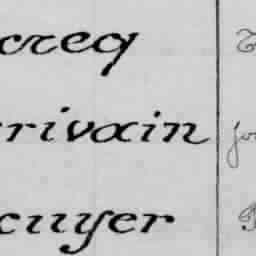 crecq
rivain
cuyer